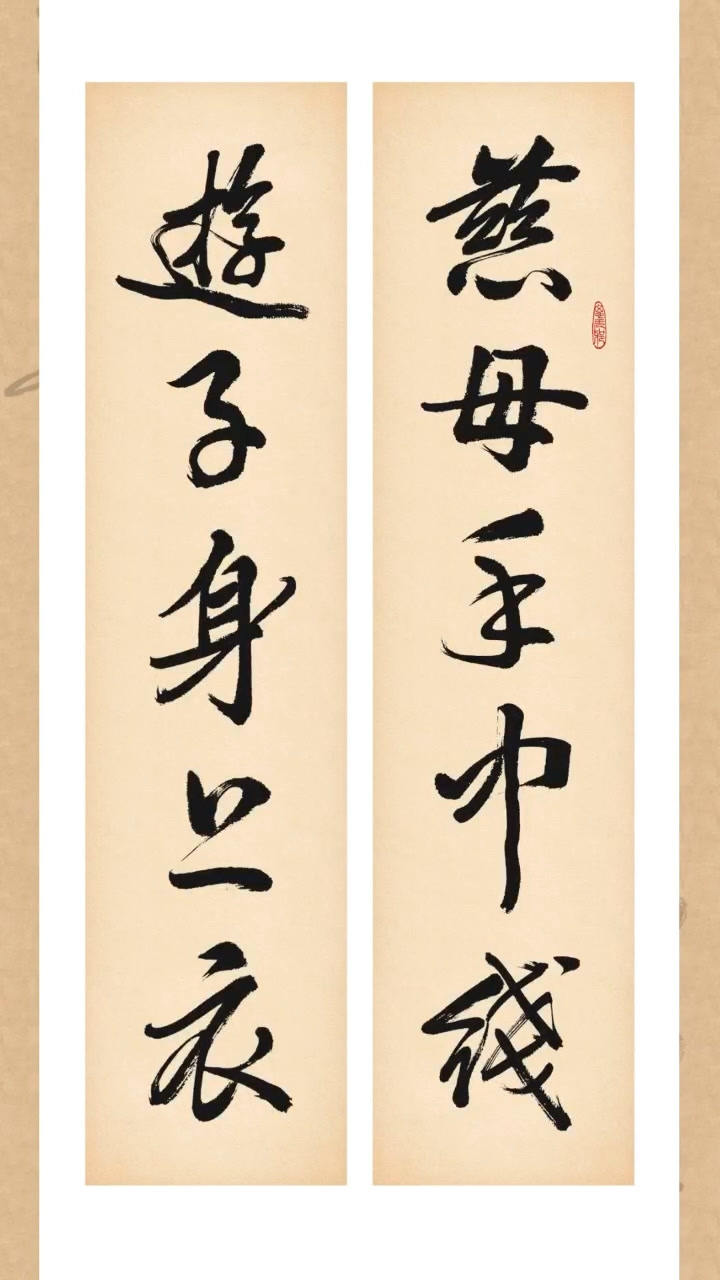 慈母手中线
遊子身上衣